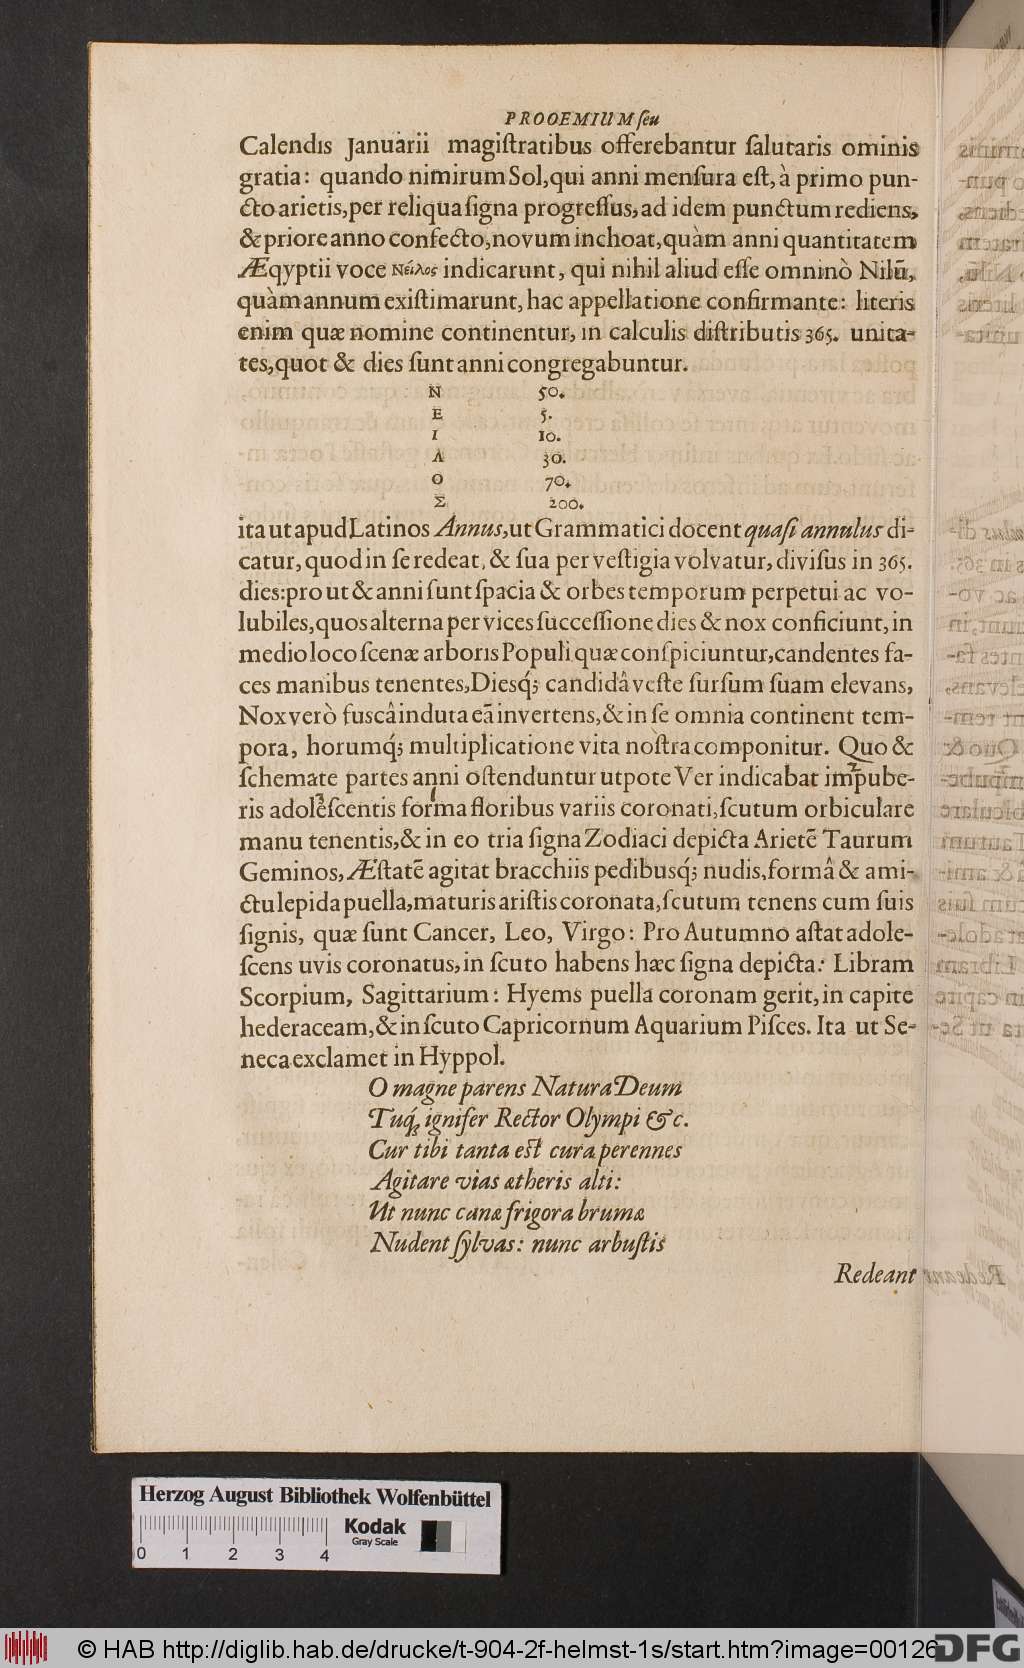 PROOEMIUM ſeu
Calendis Januarii magiſtratibus offerebantur ſalutaris ominis
gratia: quando nimirum Sol, qui anni menſura eſt, à primo pun-
cto arietis, per reliqua ſigna progreſſus, ad idem punctum rediens,
& priore anno confecto, novum inchoat, quàm anni quantitatem
Æqyptii voce Νείλος indicarunt, qui nihil aliud eſſe omninò Nilū,
quàm annum exiſtimarunt, hac appellatione confirmante: literis
enim quæ nomine continentur, in calculis diſtributis 365. unita-
tes, quot & dies ſunt anni congregabuntur.
Ν 50.
Ε 5.
Ι 10.
Λ 30.
Ο 70.
Σ 200.
ita ut apud Latinos Annus, ut Grammatici docent quaſi annulus di-
catur, quod in ſe redeat, & ſua per veſtigia volvatur, diviſus in 365.
dies: pro ut & anni ſunt ſpacia & orbes temporum perpetui ac vo-
lubiles, quos alterna per vices ſucceſſione dies & nox conficiunt, in
medio loco ſcenæ arboris Populi quæ conſpiciuntur, candentes fa-
ces manibus tenentes, Diesq́; candidâ veſte ſurſum ſuam elevans,
Nox verò fuscâ induta eā invertens, & in ſe omnia continent tem-
pora, horumq́; multiplicatione vita noſtra componitur. Quo &
ſchemate partes anni oſtenduntur utpote Ver indicabat impube-
ris adoleſcentis forma floribus variis coronati, ſcutum orbiculare
manu tenentis, & in eo tria ſigna Zodiaci depicta Arietē Taurum
Geminos, Æſtatē agitat bracchiis pedibusq́; nudis, formâ & ami-
ctu lepida puella, maturis ariſtis coronata, ſcutum tenens cum ſuis
ſignis, quæ ſunt Cancer, Leo, Virgo: Pro Autumno aſtat adole-
ſcens uvis coronatus, in ſcuto habens hæc ſigna depicta: Libram
Scorpium, Sagittarium: Hyems puella coronam gerit, in capite
hederaceam, & in ſcuto Capricornum Aquarium Piſces. Ita ut Se-
neca exclamet in Hyppol.
O magne parens Natura Deum
Tuq́; ignifer Rector Olympi &c.
Cur tibi tanta eſt cura perennes
Agitare vias ætheris alti:
Ut nunc canæ frigora brumæ
Nudent ſylvas: nunc arbuſtis
Redeant
Herzog August Bibliothek Wolfenbüttel
Kodak
Gray Scale
0 1 2 3 4
© HAB http://diglib.hab.de/drucke/t-904-2f-helmst-1s/start.htm?image=00126
DFG